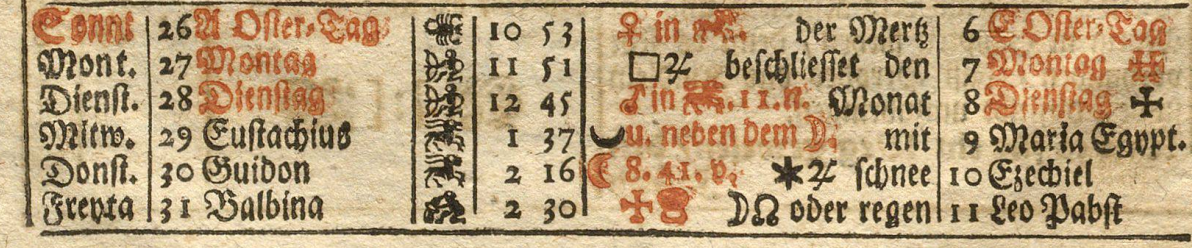 Sonnt 26 A Oster-Tag 10 53 ♀ in der Mertz 6 E Oster-Tag
Mont. 27 Montag 11 51 □♃ beschliesset den 7 Montag
Dienst. 28 Dienstag 12 45 ♂ in .11.n. Monat 8 Dienstag ✠
Mitw. 29 Eustachius 1 37 u. neben dem ☽. mit 9 Maria Egypt.
Donst. 30 Guidon 2 16 ☾ 8. 41. v. ✶♃ schnee 10 Ezechiel
Freyta 31 Balbina 2 30 ☽☊ oder regen 11 Leo Pabst